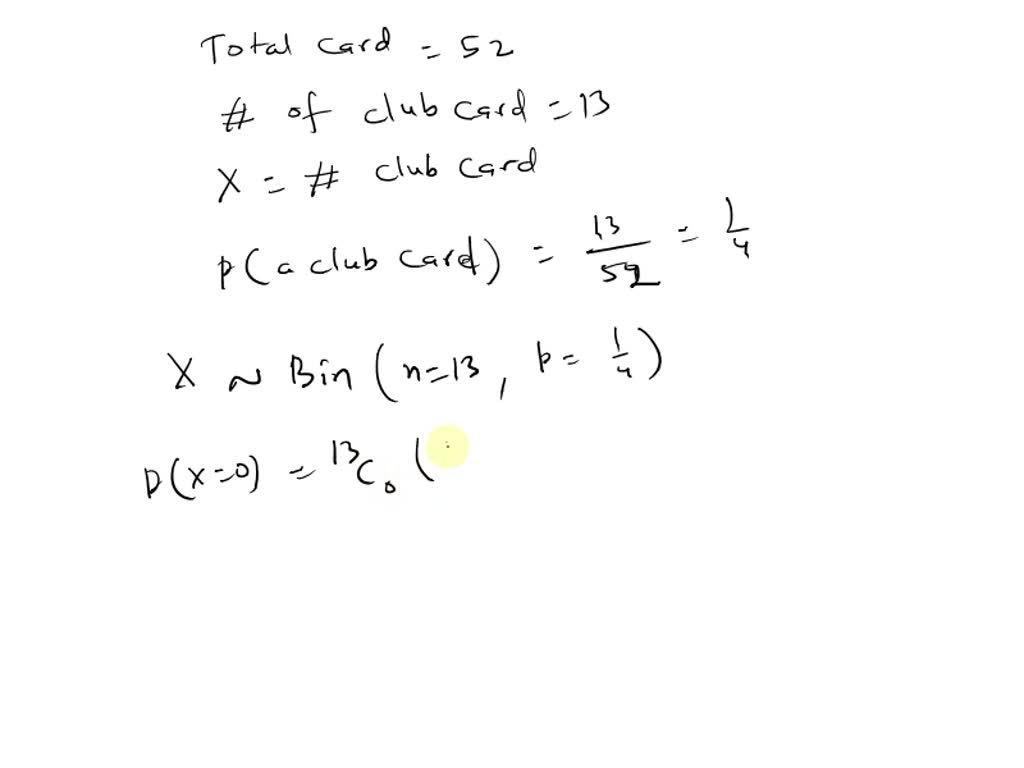 Total card = 52
# of club card = 13
X = # club card
p(a club card) = 13/52 = 1/4
X ~ Bin (n=13, p = 1/4)
P(X=0) = ¹³C₀ (